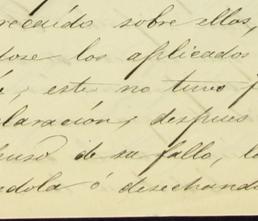 recaído sobre ellos,
dose los aplicados
este no tuvo
claración, despues
de su fallo, lo
ndola ó desechando